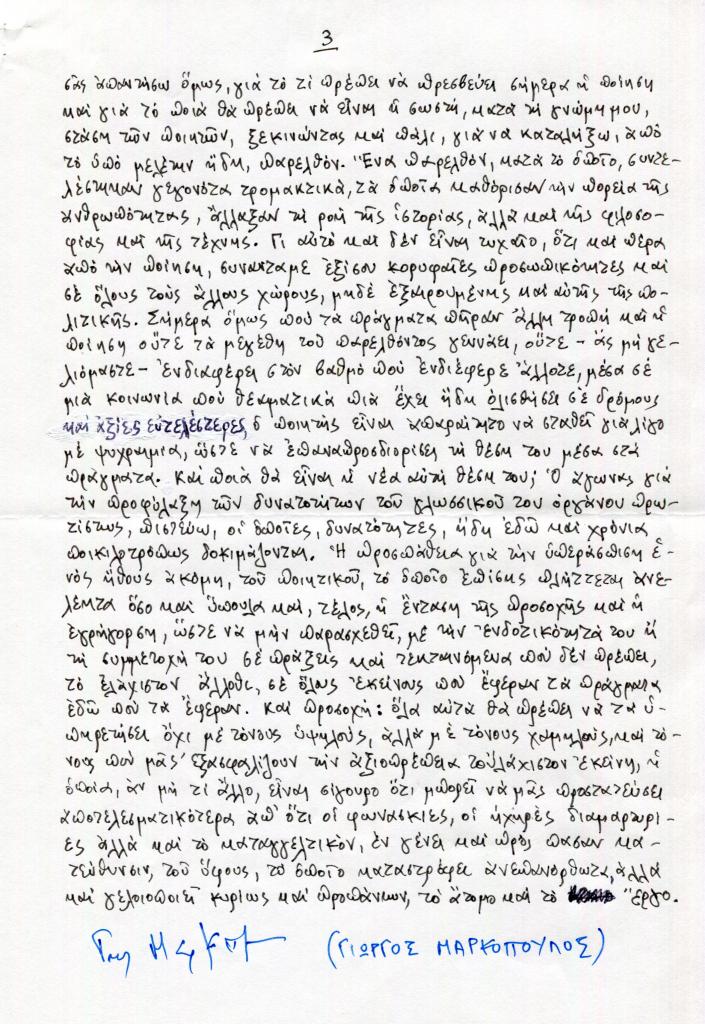 3
σᾶς ἀπαντήσω ὅμως, γιά τό τί πρέπει νά πρεσβεύει σήμερα ἡ ποίηση
καί γιά τό ποιά θά πρέπει νά εἶναι ἡ σωστή, κατά τή γνώμη μου,
στάση τῶν ποιητῶν, ξεκινώντας καί πάλι, γιά νά καταλήξω, ἀπό
τό ὑπό μελέτην ἤδη, παρελθόν. Ἕνα παρελθόν, κατά τό ὁποῖο, συντε-
λέστηκαν γεγονότα τρομακτικά, τά ὁποῖα καθόρισαν τήν πορεία τῆς
ἀνθρωπότητας, ἄλλαξαν τή ροή τῆς ἱστορίας, ἀλλά καί τῆς φιλοσο-
φίας καί τῆς τέχνης. Γι αὐτό καί δέν εἶναι τυχαῖο, ὅτι καί πέρα
ἀπό τήν ποίηση, συναντᾶμε ἐξίσου κορυφαῖες προσωπικότητες καί
σέ ὅλους τούς ἄλλους χώρους, μηδέ ἐξαιρουμένης καί αὐτῆς τῆς πο-
λιτικῆς. Σήμερα ὅμως πού τά πράγματα πῆραν ἄλλη τροπή καί ἡ
ποίηση οὔτε τά μεγέθη τοῦ παρελθόντος γεννάει, οὔτε – ἄς μή γε-
λιόμαστε – ἐνδιαφέρει στόν βαθμό πού ἐνδιέφερε ἄλλοτε, μέσα σέ
μιά κοινωνία πού θεαματικά πιά ἔχει ἤδη ὀλισθήσει σέ δρόμους
καί ἀξίες εὐτελέστερες, ὁ ποιητής εἶναι ἀπαραίτητο νά σταθεῖ γιά λίγο
μέ ψυχραιμία, ὥστε νά ἐπαναπροσδιορίσει τή θέση του μέσα στά
πράγματα. Καί ποιά θά εἶναι ἡ νέα αὐτή θέση του; Ὁ ἀγώνας γιά
τήν προφύλαξη τῶν δυνατοτήτων τοῦ γλωσσικοῦ του ὀργάνου πρω-
τίστως, πιστεύω, οἱ ὁποῖες, δυνατότητες, ἤδη ἐδῶ καί χρόνια
ποικιλοτρόπως δοκιμάζονται. Ἡ προσπάθεια γιά τήν ὑπεράσπιση ἑ-
νός ἤθους ἀκόμη, τοῦ ποιητικοῦ, τό ὁποῖο ἐπίσης πλήττεται ἀνε-
λέητα ὅσο καί ὕπουλα καί, τέλος, ἡ ἔνταση τῆς προσοχῆς καί ἡ
ἐγρήγορση, ὥστε νά μήν παρασχεθεῖ, μέ τήν ἐνδοτικότητά του ἤ
τή συμμετοχή του σέ πράξεις καί τεκταινόμενα πού δέν πρέπει,
τό ἐλάχιστον ἄλλοθι, σέ ὅλους ἐκείνους πού ἔφεραν τά πράγματα
ἐδῶ πού τά ἔφεραν. Καί προσοχή: ὅλα αὐτά θά πρέπει νά τά ὑ-
πηρετήσει ὄχι μέ τόνους ὑψηλούς, ἀλλά μέ τόνους χαμηλούς, καί τό-
νους πού μᾶς ἐξασφαλίζουν τήν ἀξιοπρέπεια τουλάχιστον ἐκείνη, ἡ
ὁποία, ἄν μή τί ἄλλο, εἶναι σίγουρο ὅτι μπορεῖ νά μᾶς προστατεύσει
ἀποτελεσματικότερα ἀπ' ὅτι οἱ φωνασκίες, οἱ ἠχηρές διαμαρτυρί-
ες ἀλλά καί τό καταγγελτικόν, ἐν γένει καί πρός πᾶσαν κα-
τεύθυνσιν, τοῦ ὕφους, τό ὁποῖο καταστρέφει ἀνεπανόρθωτα, ἀλλά
καί γελοιοποιεῖ κυρίως καί προπάντων, τό ἄτομο καί τό ἔργο.
(ΓΙΩΡΓΟΣ ΜΑΡΚΟΠΟΥΛΟΣ)